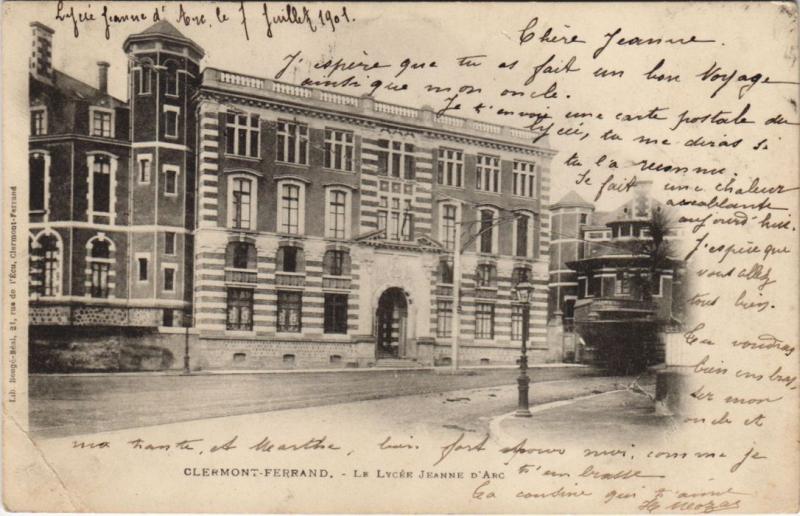 Lycée Jeanne d'Arc, le 7 Juillet 1901.
Chère Jeanne.
J'espère que tu as fait un bon Voyage
ainsi que mon oncle.
Je t'envoie une carte postale du
lycée, tu me diras si
tu l'a reconnue.
Il fait une chaleur
accablante
aujourd'hui.
J'espère que
vous allez
tous bien.
Tu voudras
bien embras
ser mon
oncle et
ma tante, et Marthe, bien fort pour moi, comme je
t'embrasse
Ta cousine qui t'aime
CLERMONT-FERRAND. - LE LYCÉE JEANNE D'ARC
Lib. Bougé-Béal, 21, rue de l'Écu, Clermont-Ferrand